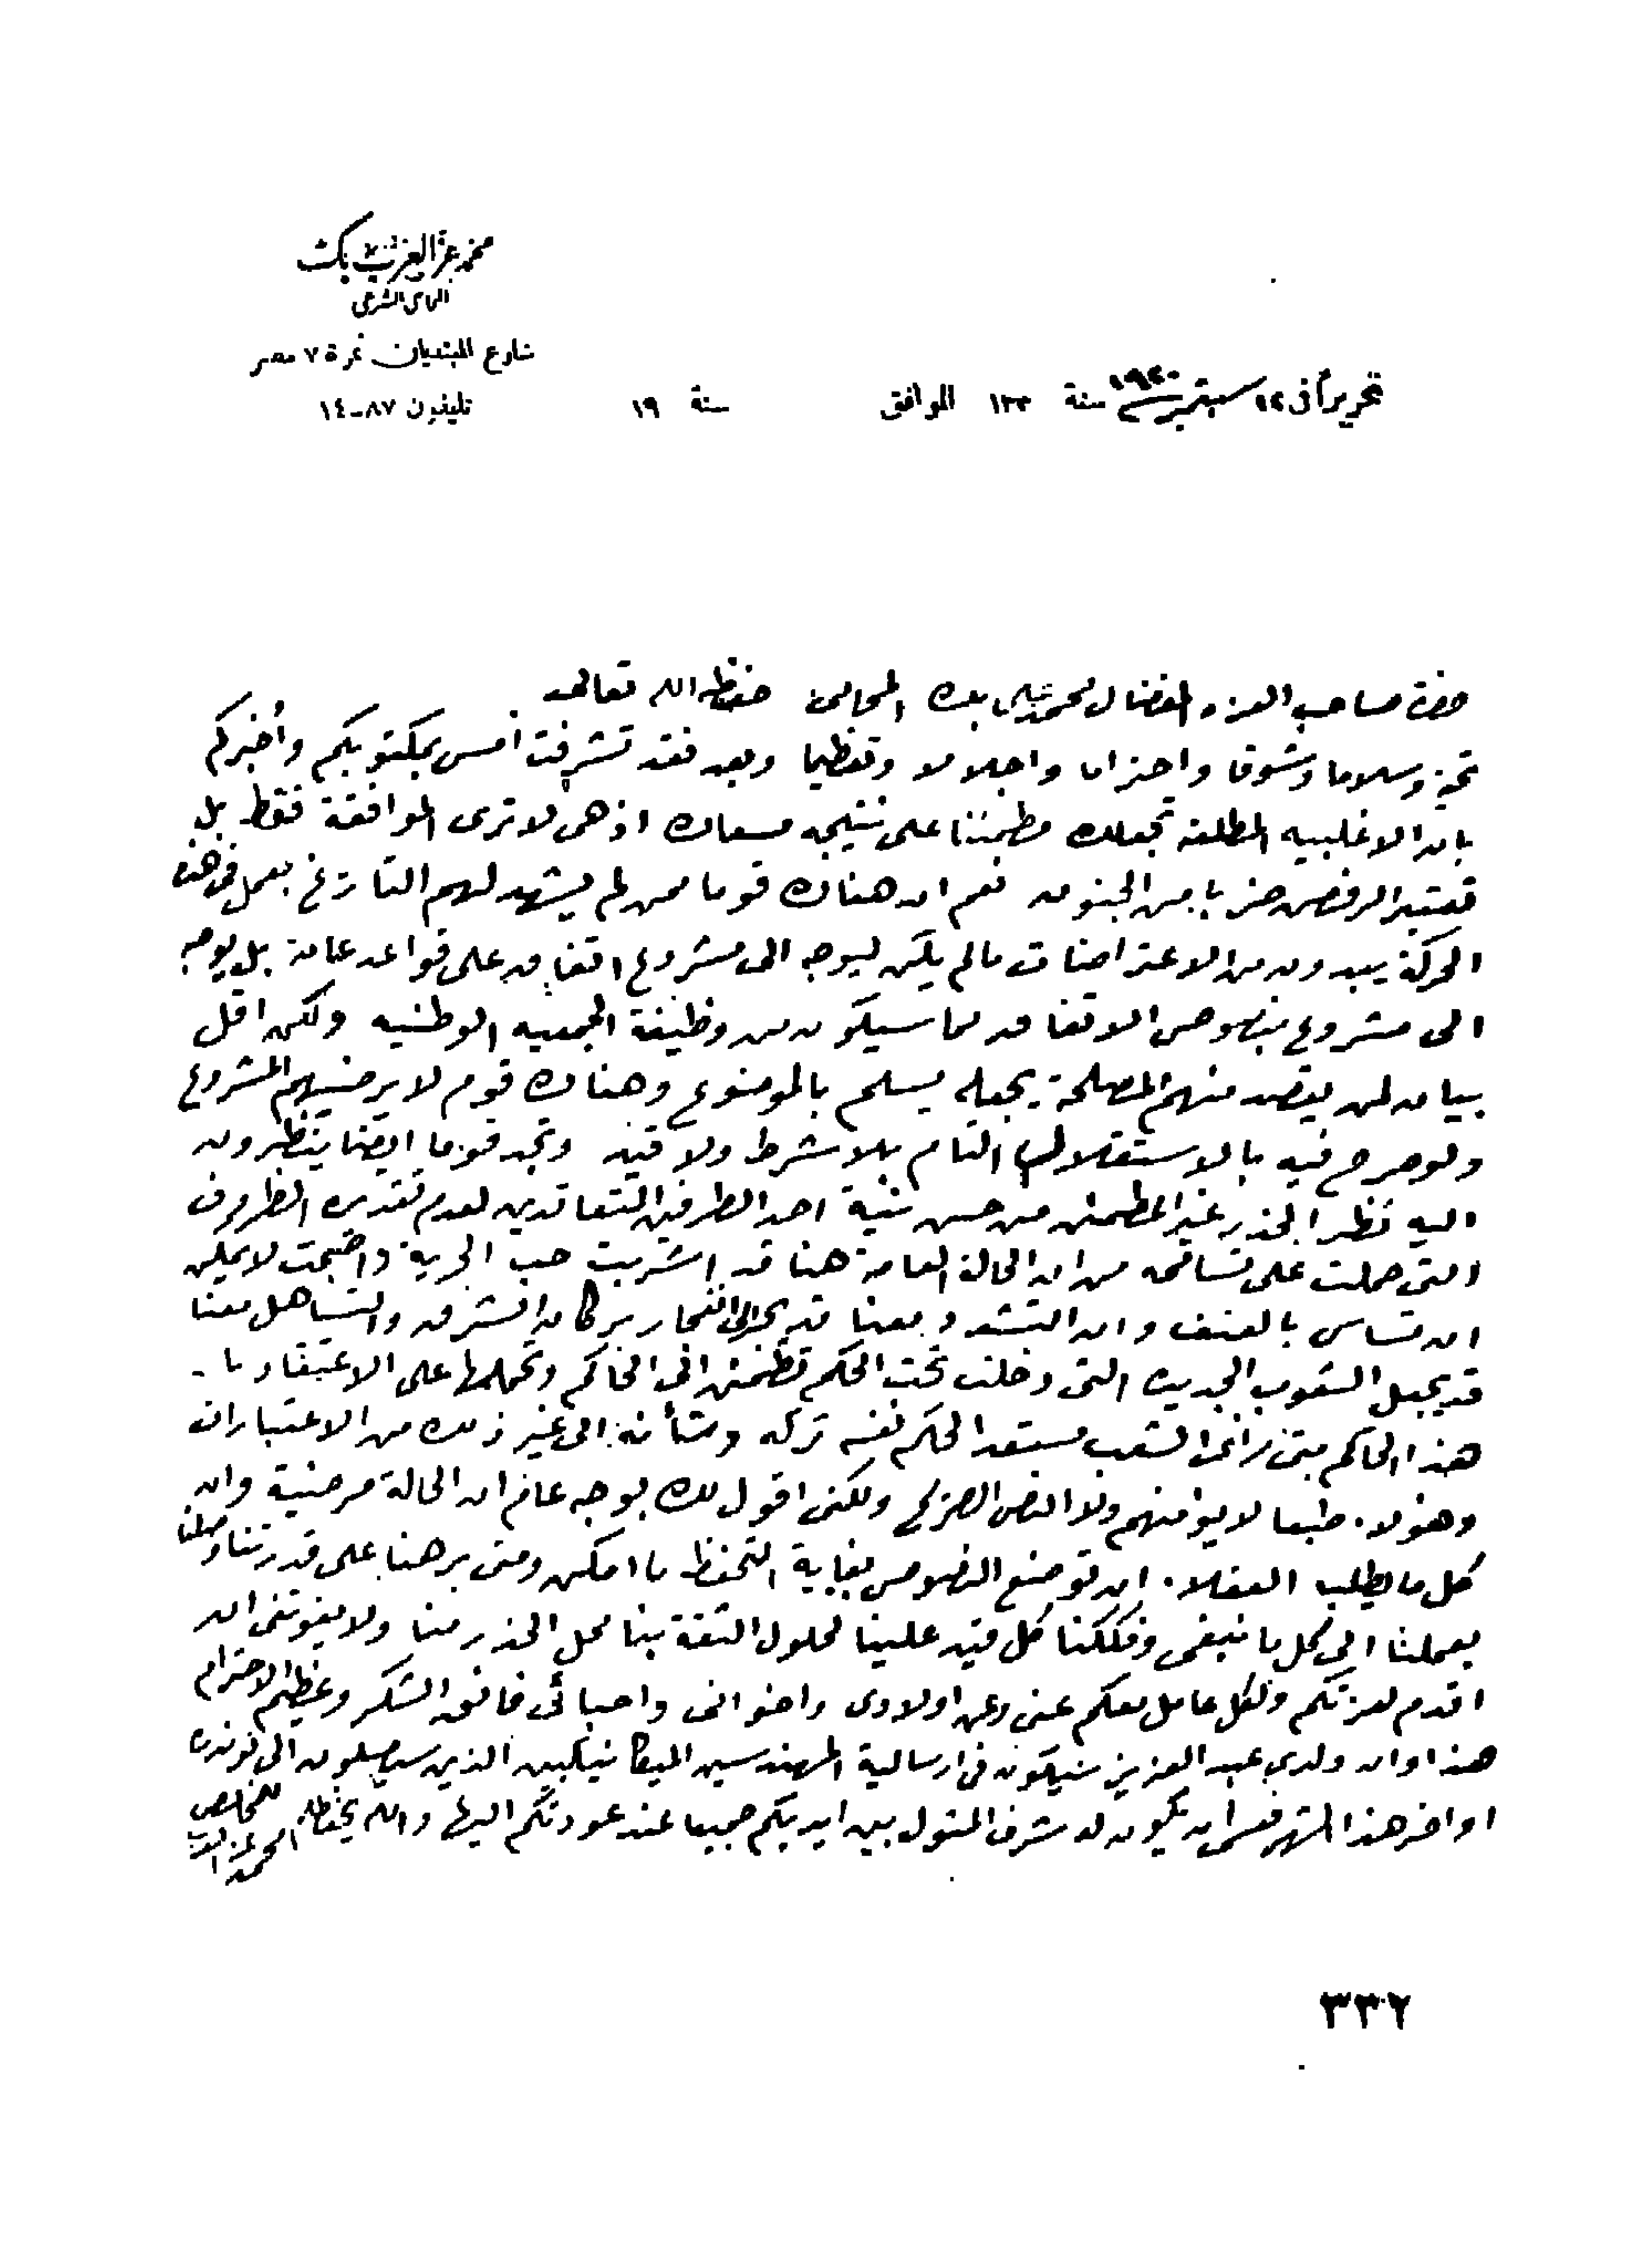 محمد عز العرب بك
المحامى الشرعى
شارع المبتديان نمرة ٧ مصر
تليفون ٨٧-١٤
تحريراً فى ١٢ سبتمبر ١٩٢٠ سنة ١٣٣ الموافق سنة ١٩
حضرة صاحب العزه المفضال محمد على بك المحامى حفظه الله تعالى
تحية وسلاما وشوقا واحتراما واجلالا وتعظيما وبعد فقد تشرفت امس بمكتوبكم وأخبركم
بان الاغلبيه المطلقه تجعلك مطمئنا على نتيجه مسعاك اذ هى لا ترى الموافقة فقط بل
تعتبر الرفض ضربا من الجنون نعم ان هناك قوما ممن لم يشهد لهم التاريخ بعمل فى هذه
الحركة يبدون من الاعتراضات مالم يكن ليوجه الى مشروع اتفاق على قواعد عامة بل يوجه
الى مشروع بنصوص الاتفاق مما سيكون من وظيفة الجمعيه الوطنيه ولكن اقل
بيان لمن يقصد منهم المصلحة يجعله يسلم بالموضوع وهناك قوم لا يرضيهم المشروع
ولو صرح فيه بالاستقلال التام بلا شرط ولا قيد وتجد قوما ايضا ينظرون
اليه نظر الحذر غير المطمئن من حسن نية احد الطرفين المتعاقدين لعدم تقديره الظروف
التى حملت على تساهله من ان الحالة العامة هنا قد اشربت حب الحرية واضحت لا يمكن
ان تساس بالعنف وان التشدد معنا قد يجر الى انفجار بركان الشرق والتساهل معنا
قد يجعل الشعوب الجديده التى دخلت تحت الحكم تطمئن الى الحاكم وتحملها على الاعتقاد بأن
هذا الحاكم متى رأى الشعب مستعدا لحكم نفسه تركه وشأنه الى غير ذلك من الاعتبارات
وهؤلاء طبعا لا يؤمنهم ولا النص الصريح ولكنى اقول لك بوجه عام ان الحالة مرضية وان
كل ما يطلب العقلاء ان توضع النصوص بغاية التحفظ ما امكن ومتى برهنا على قدرتنا وصلنا
بعملنا الى كل ما نبغى وفككنا كل قيد علينا لحلول الثقة بنا محل الحذر منا ولا يفوتنى ان
اقدم لعزتكم ولكل عامل معكم عنى وعن اولادى واخوانى واحبائى فائق الشكر وعظيم الاحترام
هذا وان ولدى عبد العزيز سيكون فى ارسالية المهندسين الميكانيكيين الذين سيصلون الى لوندره
اواخر هذا الشهر فعسى ان يكون له شرف المثول بين ايديكم جميعا عند عودتكم اليها والله يحفظكم المخلص
محمد عز العرب
٣٣٢